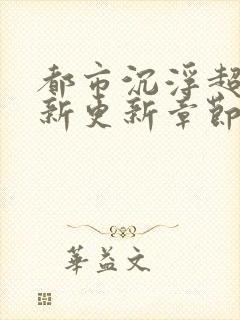 都市沉浮超
新更新章節
華益文